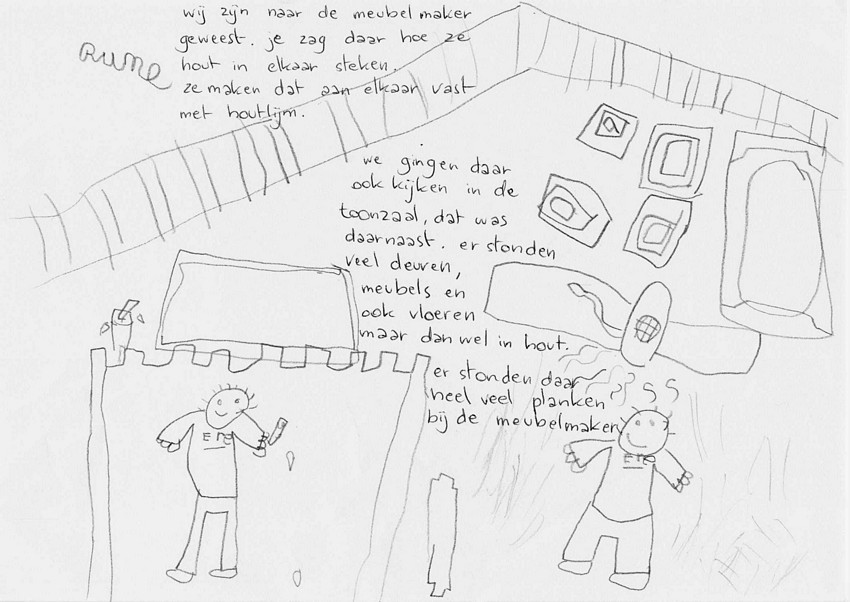 wij zijn naar de meubelmaker
geweest. je zag daar hoe ze
hout in elkaar steken.
ze maken dat aan elkaar vast
met houtlijm.
RUNE
we gingen daar
ook kijken in de
toonzaal, dat was
daarnaast. er stonden
veel deuren,
meubels en
ook vloeren
maar dan wel in hout.
er stonden daar
heel veel planken
bij de meubelmaker